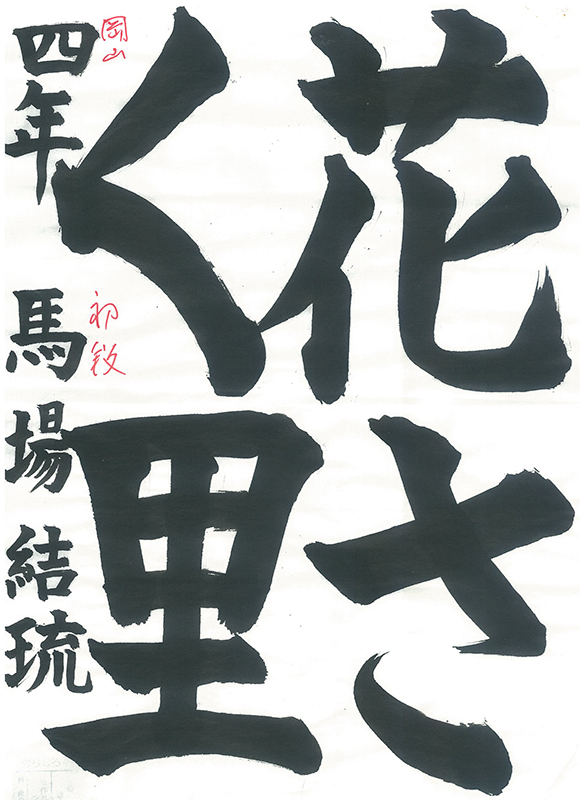 花さ
く里
岡山
初段
四年 馬場結琉